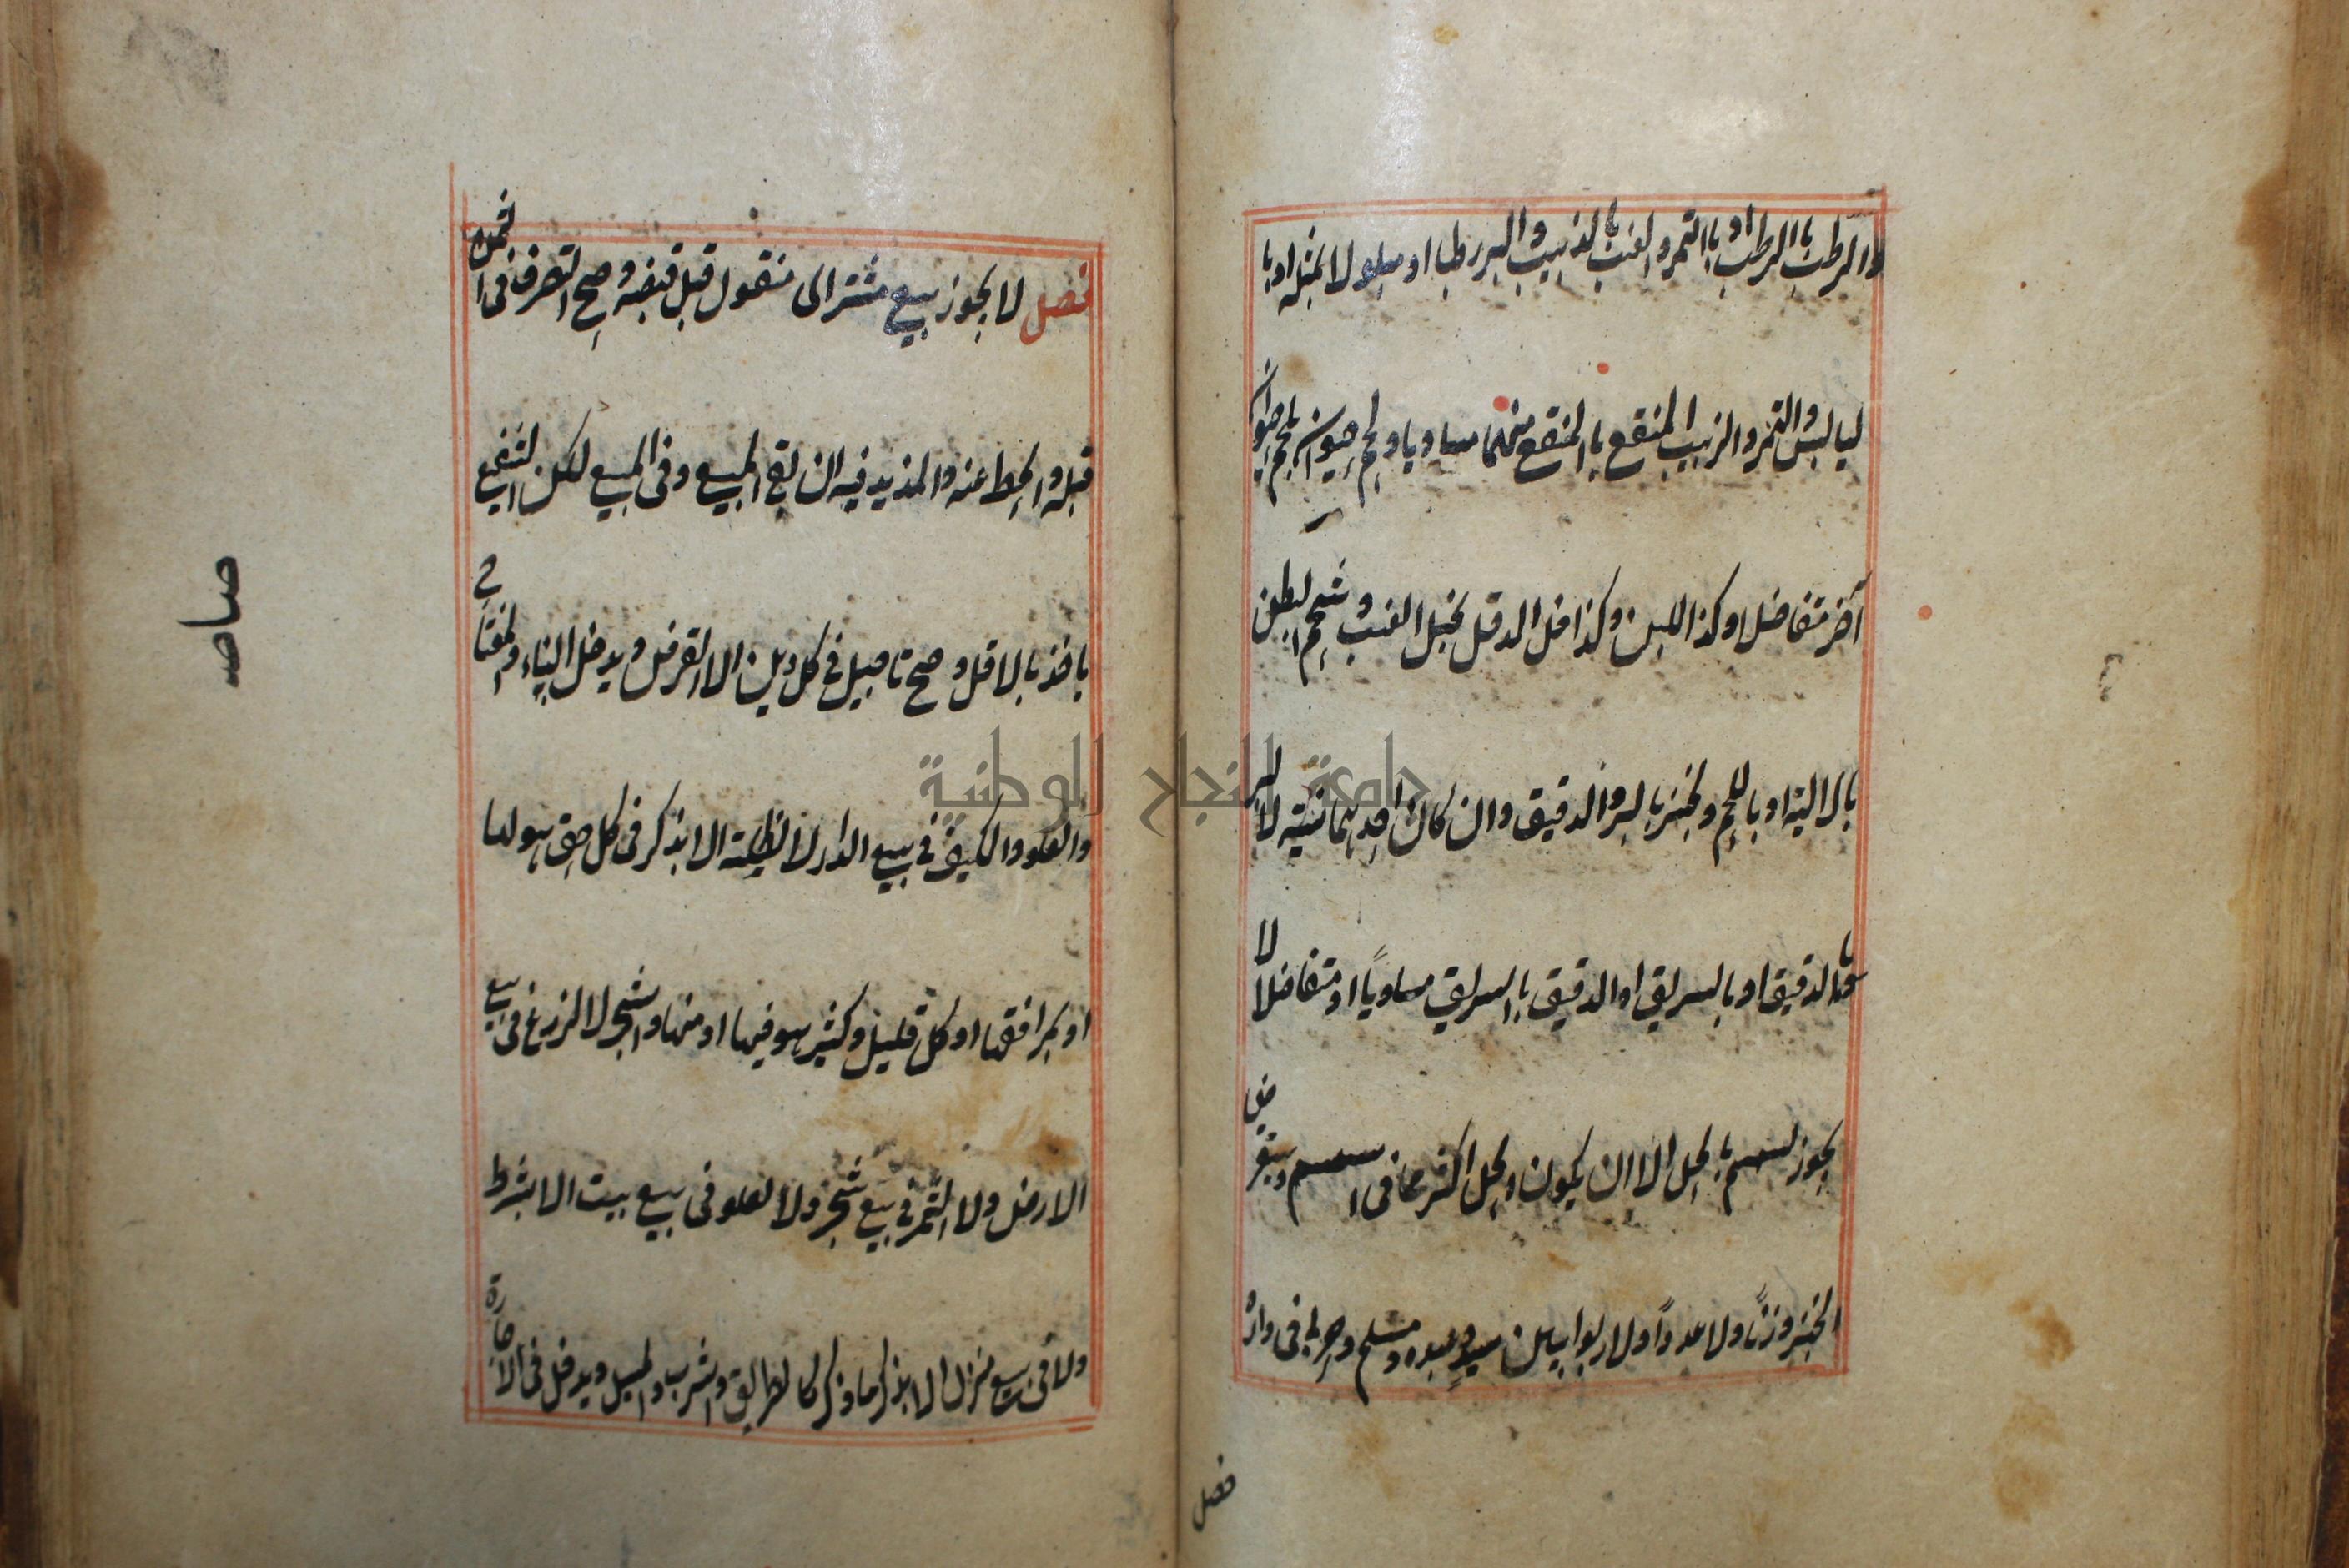 والرطب باالرطب او باالتمر والعنب باالذبيب والبر رطبا او مبلولا بمثله او با
ليالبس والتمر والزبيب المنقع باالمنقع منهما مساويا ولحم حيوان بلحم حيوان
آخر متفاضلا وكذا اللبن وكذا خل الدقل بخل العنب وشحم البطن
بالالية او باللحم ولخبز بالبر والدقيق وان كان احدهما نسية لا البر
باالدقيق او بالسريق او الدقيق باالسريق مساوياً او متفاضلا لا
يجوز لسمسم بالحل الا ان يكون الحل اكثر مما فى السمسم ويستقرض
الخبز وزناً ولا عدداً ولا ربوا بين سيد وعبده ومسلم وحربى فى داره
فصل
فصل لا يجوز بيع مشترالى منقول قبل قبضه وصح التصرف فى الثمن
قبله والحط عنه والمذيد فيه ان بقى المبيع وفى المبيع لكن الشفيع
ياخذ بالاقل وصح تاجيل فى كل دين الا القرض ويدخل البناء والمفتاح
والعلو والكنيف فى بيع الدار لا الظلة الا بذكر فى كل حق هو لها
او بمرافقها او كل قليل وكثير هو فيها او منها والشجر لا الزرع فى بيع
الارض ولا الثمر فى بيع شجر ولا لعلو فى بيع بيت الا بشرط
ولا فى بيع منزل الا بذكر ما ذكر كالطريق والشرب والمسيل ويدخل فى الاجارة
جامعة النجاح الوطنية